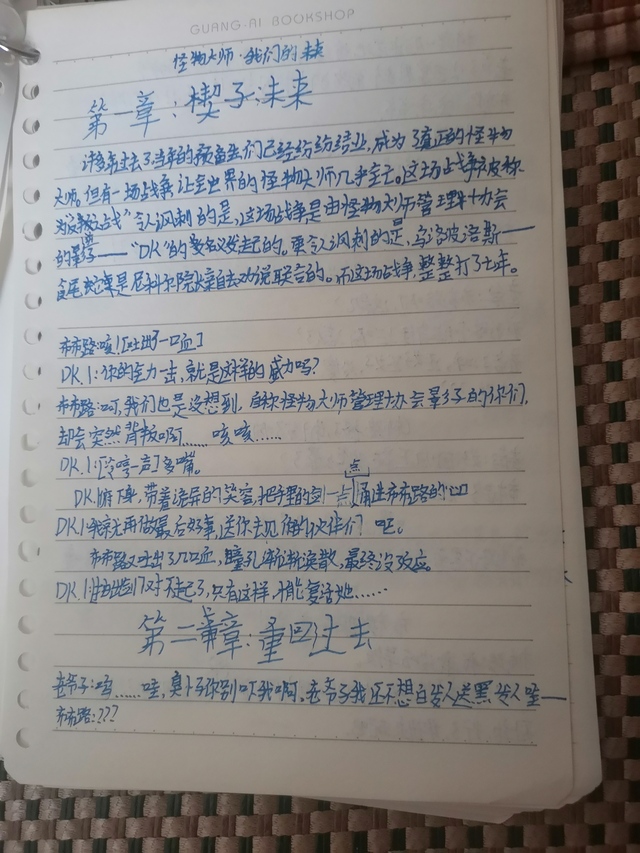 GUANG-AI BOOKSHOP
怪物大师·我们的未来
第一章:楔子:未来
许多年过去了当年的预备生们已经纷纷结业,成为了真正的怪物
大师。但有一场战争让全世界的怪物大师几乎全亡。这场战争被称
为"叛战"令人讽刺的是,这场战争是由怪物大师管理协会
的影子——"DK"的名义发起的。更令人讽刺的是,乌洛波洛斯——
食尾蛇竟是尼科尔院长亲自去劝说联合的。而这场战争,整整打了七年。
布布路:咳![吐出了一口血]
DK.1:你的全力一击,就是这样的威力吗?
布布路:呵,我们也是没想到,自称怪物大师管理协会影子的你们,
却会突然背叛啊……咳咳……
DK.1:[冷哼一声]多嘴。
DK.1俯下身,带着诡异的笑容,把手里的剑一点点捅进布布路的心口
DK.1:我就再做最后好事,送你去见你的伙伴们吧。
布布路又吐出了几口血,瞳孔渐渐涣散,最终没效应。
DK.1:对不起了,只有这样,才能复活她……
第二章:重回过去
老爷子:呜……哇,臭小子你别吓我啊,老爷子我还不想白发人送黑发人哇——
布布路:???